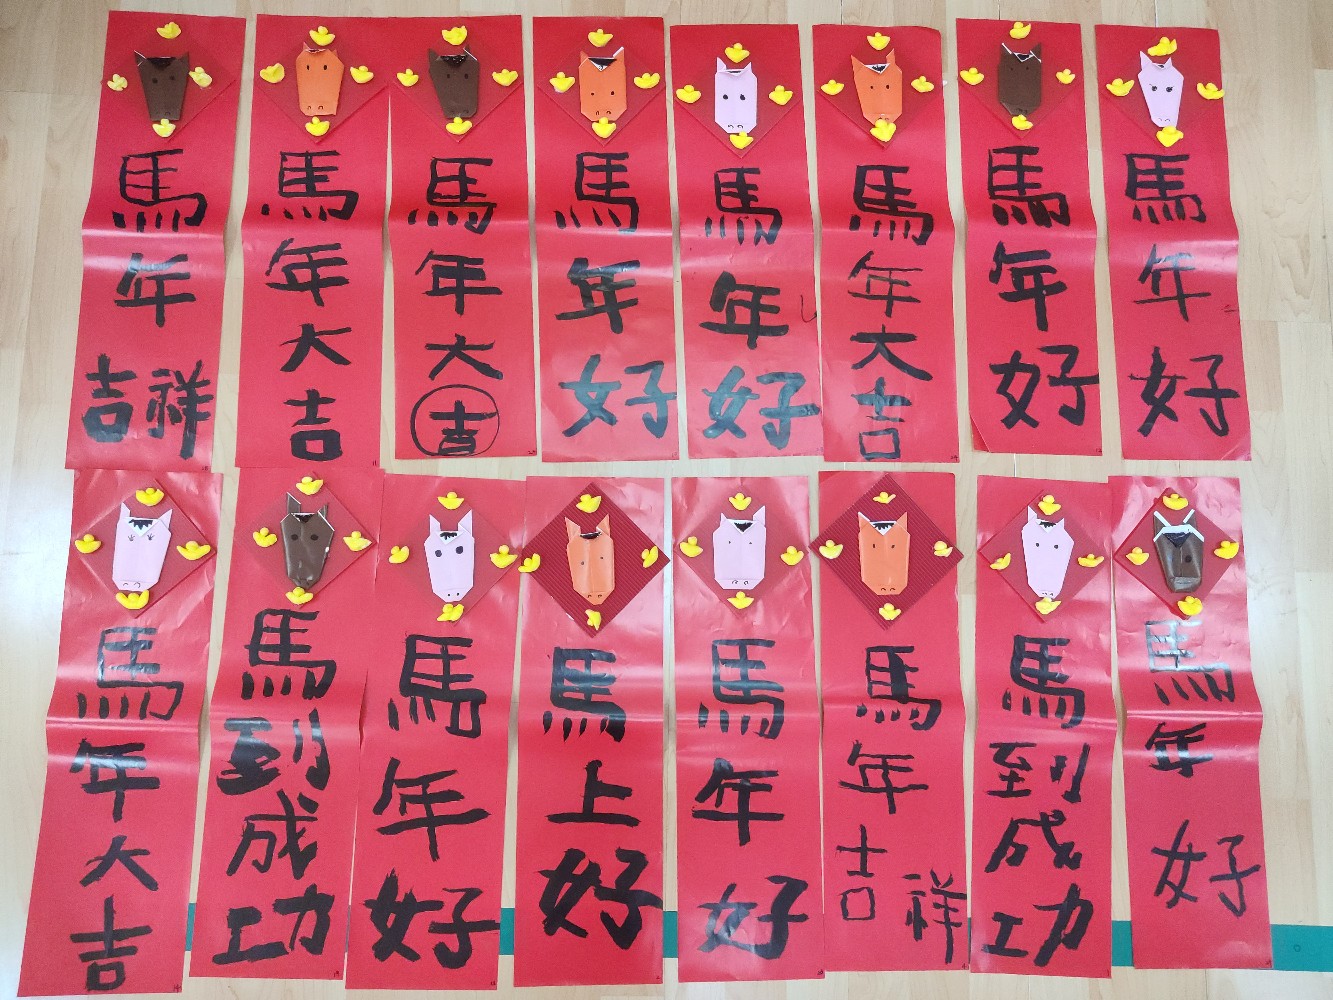 馬年吉祥
馬年大吉
馬年大吉
馬年好
馬年好
馬年大吉
馬年好
馬年好
馬年大吉
馬到成功
馬年好
馬上好
馬年好
馬年吉祥
馬到成功
馬年好